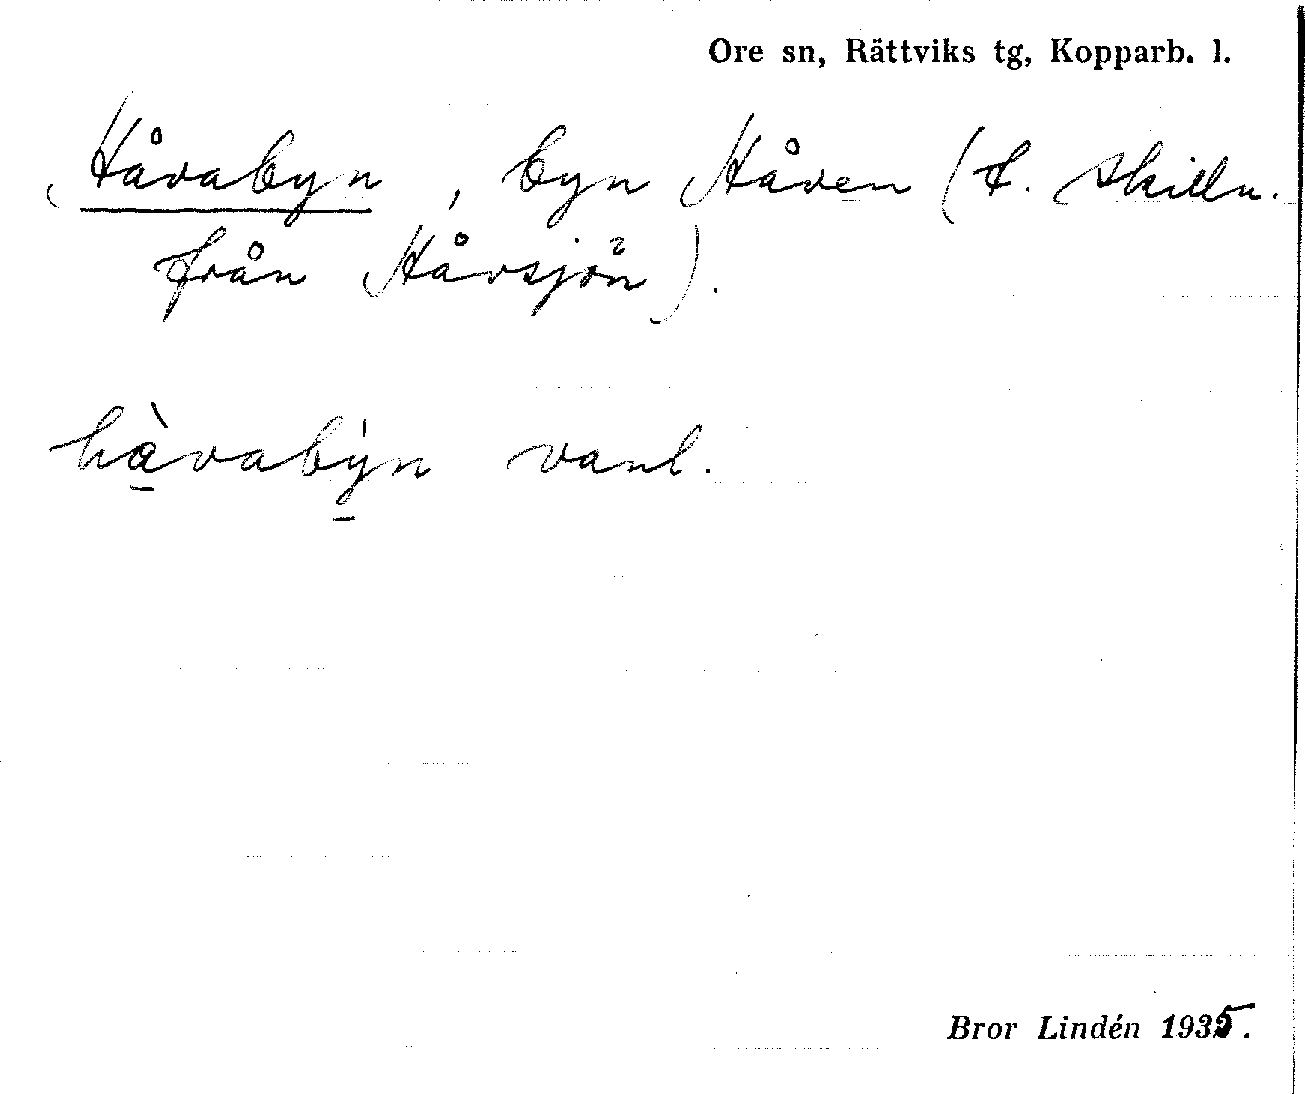 Ore sn, Rättviks tg, Kopparb. l.
Håvabyn, byn Håven (t. skilln.
från Håvsjön).
hàvabýn vanl.
Bror Lindén 1935.